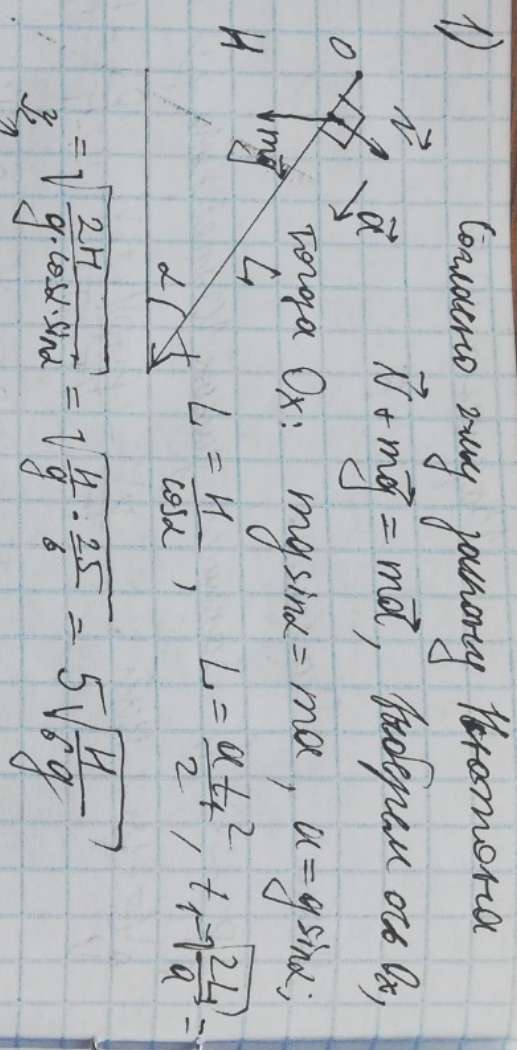 1) Согласно 2му закону Ньютона
N⃗ + mg⃗ = ma⃗, Выберем ось Ox,
тогда Ox: mg sinα = ma, a = g sinα;
N⃗
a⃗
O
H
mg⃗
L
α
L = H/cosα, L = at₁²/2, t₁ = √(2L/a) =
= √(2H/(g·cosα·sinα)) = √(H/g · 25/6) = 5√(H/6g)